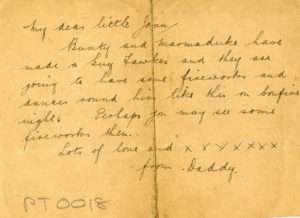 My dear little Joan
Bunky and Marmaduke have
made a Guy Fawkes and they are
going to have some fireworks and
dances round him like this on bonfire
night. Perhaps you may see some
fireworks then.
Lots of love and x x y x x x x
from Daddy.
PT 0018